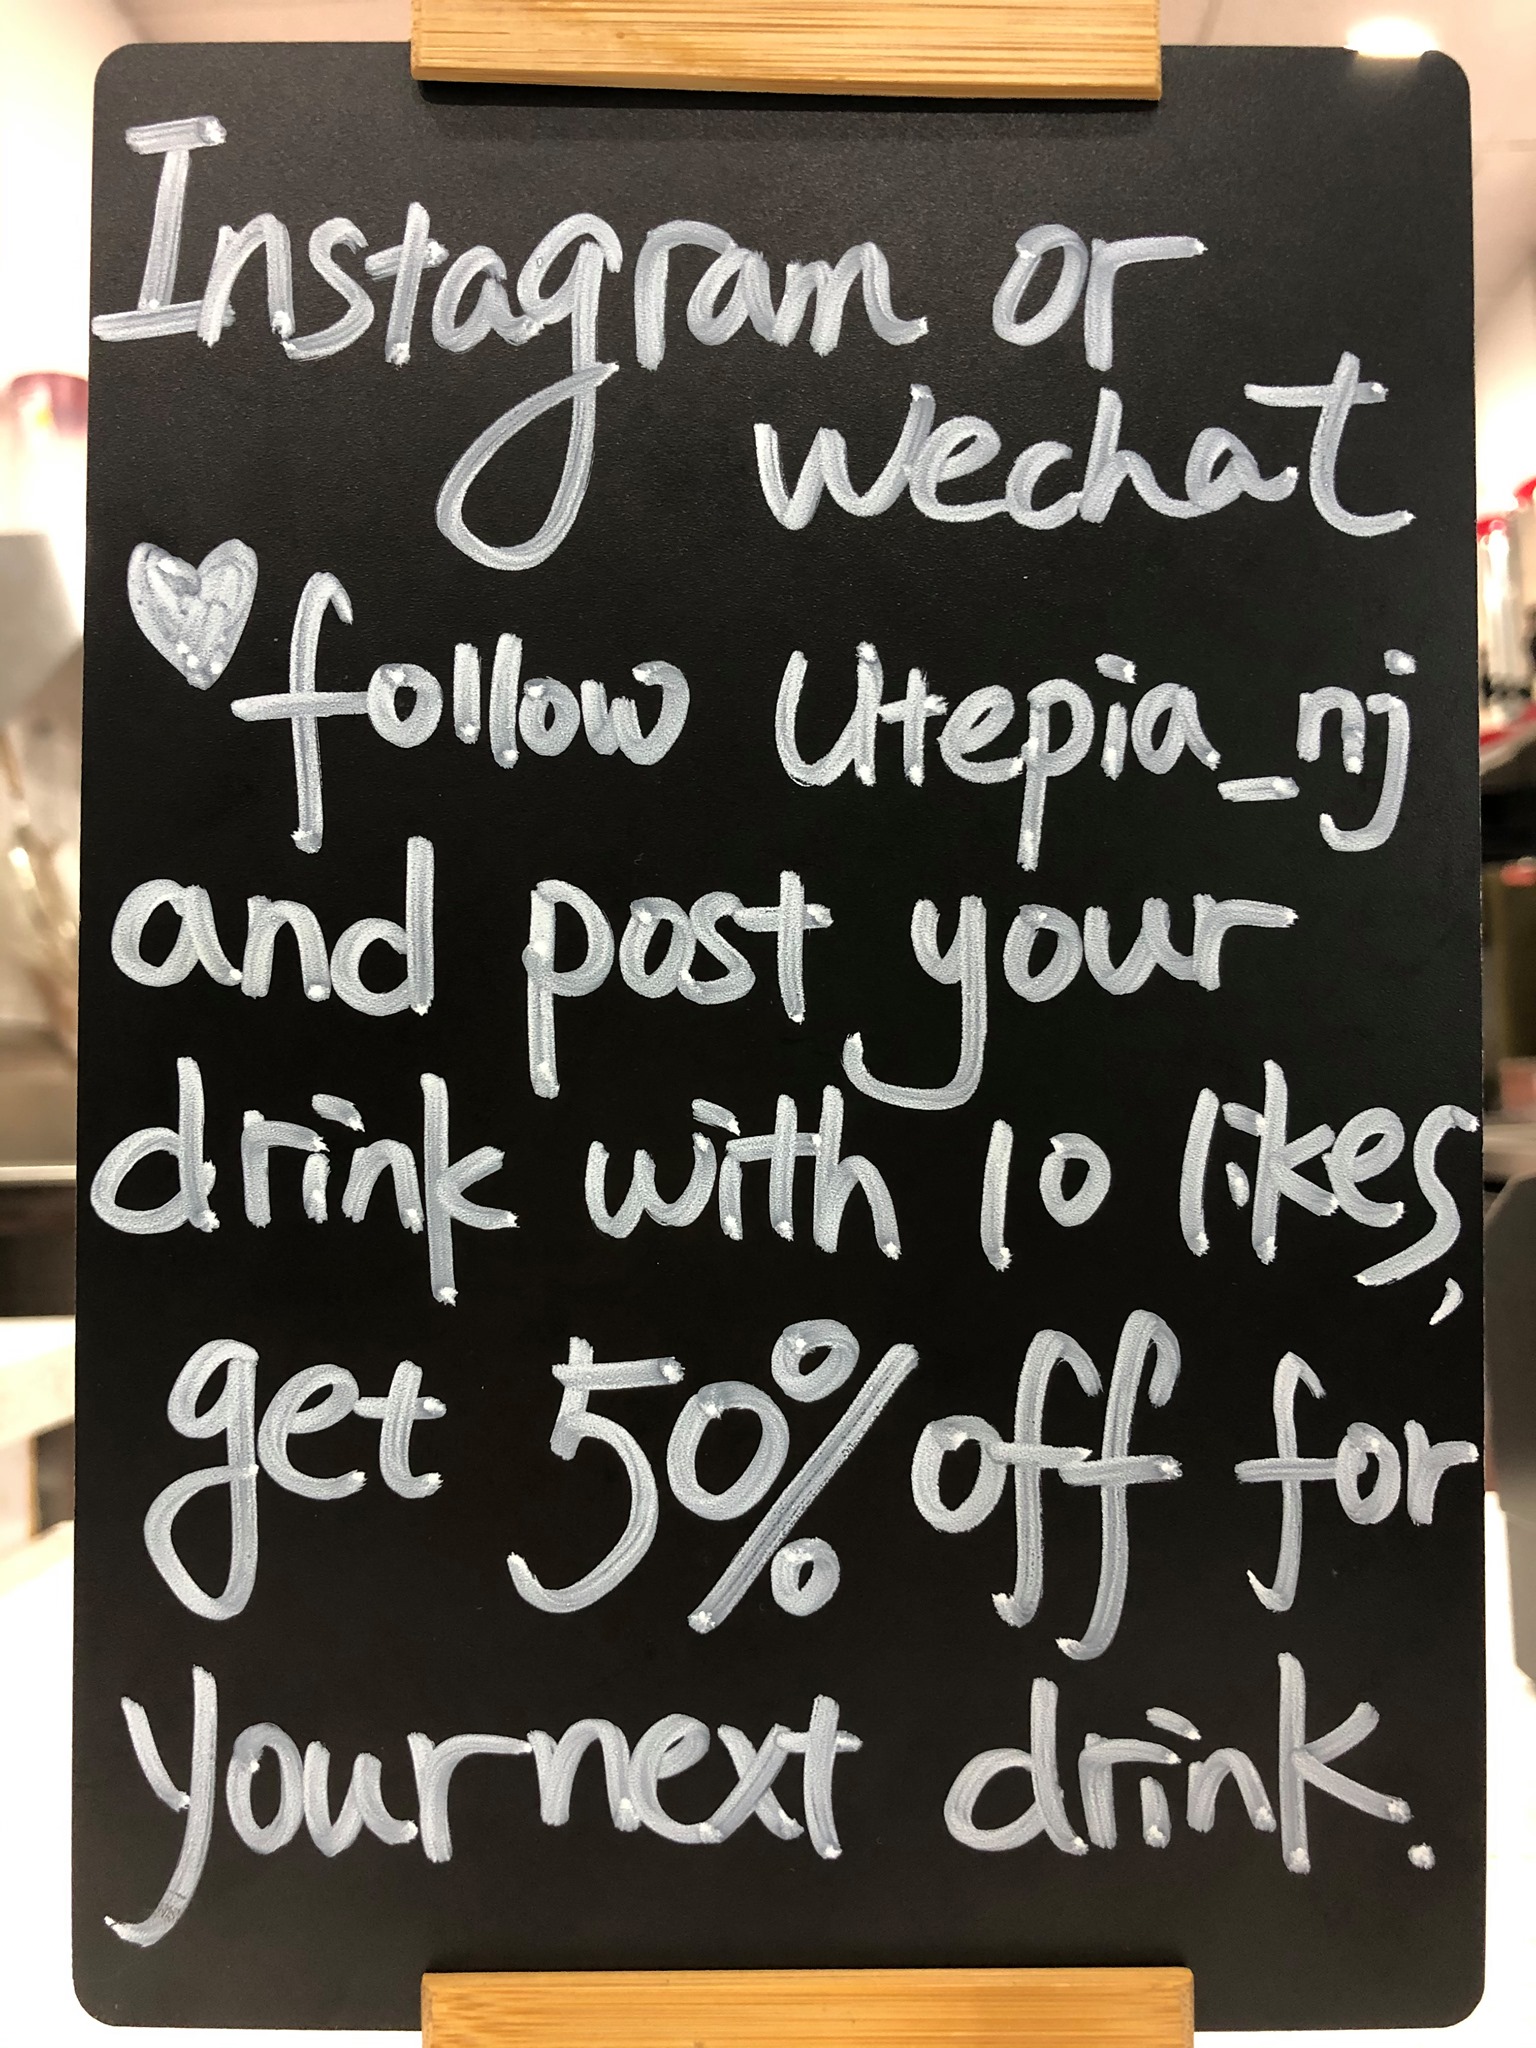 Instagram or
wechat
follow Utepia_nj
and post your
drink with 10 likes,
get 50% off for
your next drink.